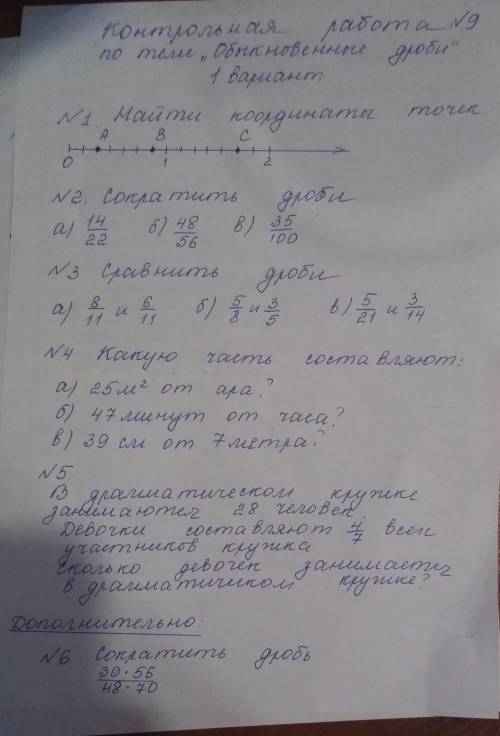 Контрольная работа №9
по теме „Обыкновенные дроби"
1 вариант
№1 Найти координаты точек
A B C
0 1 2
№2. Сократить дроби
а) 14/22 б) 48/56 в) 35/100
№3 Сравнить дроби
а) 8/11 и 6/11 б) 5/8 и 3/5 в) 5/21 и 3/14
№4 Какую часть составляют:
а) 25 м² от ара?
б) 47 минут от часа?
в) 39 см от 7 метра?
№5
В драматическом кружке
занимаются 28 человек.
Девочки составляют 4/7 всех
участников кружка.
Сколько девочек занимается
в драматическом кружке?
Дополнительно:
№6 Сократить дробь
30·56/48·70